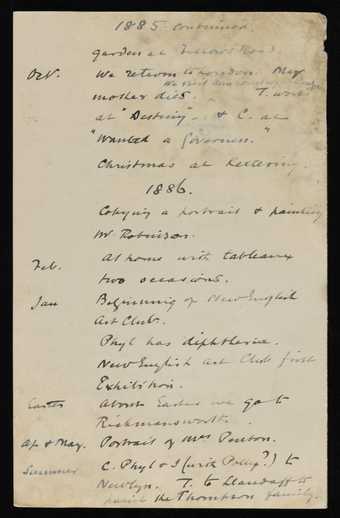 1885 continued.
garden at Fellows Road.
Oct. We return to London. May
mother dies. T. works
at "Destiny". & C. at
"Wanted a Governess."
Christmas at Kettering.
1886.
Copying a portrait & painting
Mr Robinson.
Feb. At home with tableaux
two occasions.
Jan Beginning of New English
Art Club.
Phyl has diphtheria.
New English Art Club first
Exhibition.
Easter About Easter we go to
Rickmansworth.
Ap. & May. Portrait of Mrs Penton.
Summer C. Phyl & I (with Polly?) to
Newlyn. T. to Llandaff to
paint the Thompson family.